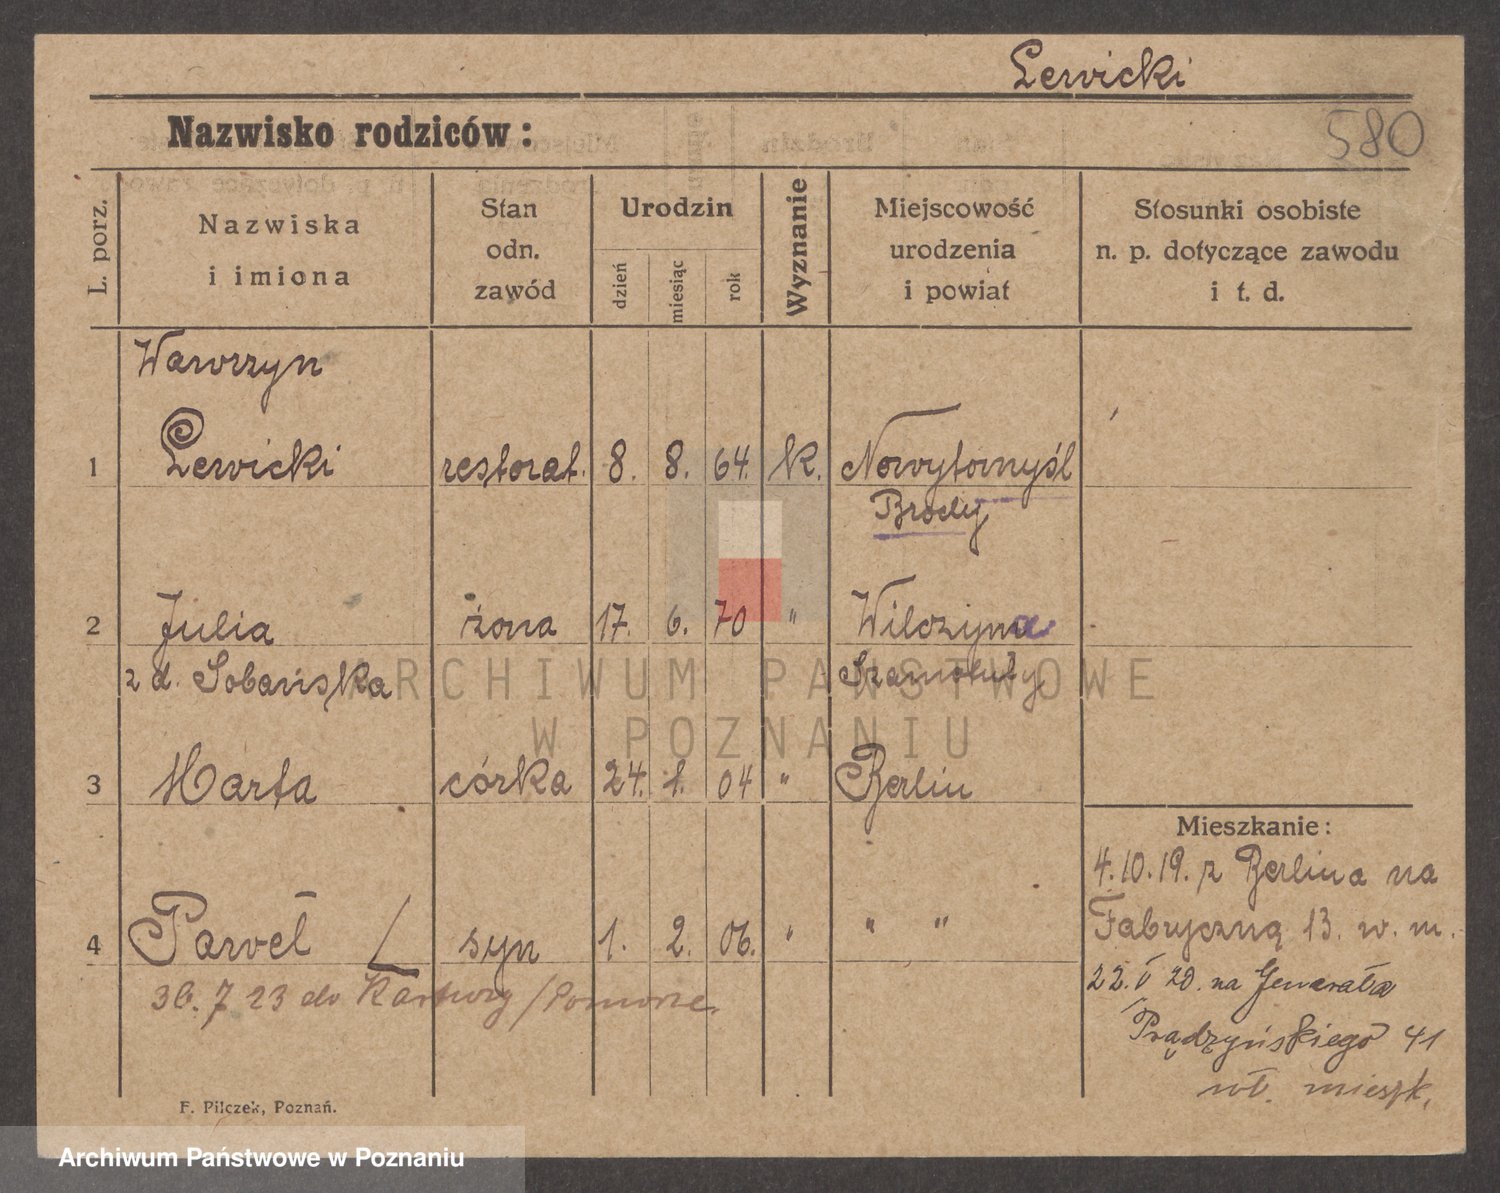 Lewicki
580
Nazwisko rodziców:
L. porz.
Nazwiska
i imiona
Stan
odn.
zawód
Urodzin
dzień
miesiąc
rok
Wyznanie
Miejscowość
urodzenia
i powiat
Stosunki osobiste
n. p. dotyczące zawodu
i t. d.
Wawrzyn
1 Lewicki restorat. 8. 8. 64. k. Nowytomyśl
Brody
2 Julia żona 17. 6. 70 " Wilczyna
z d. Sobańska Szamotuły
3 Marta córka 24. 1. 04 " Berlin
4 Paweł syn 1. 2. 06. " " "
30. 7 23 do Kartuzy / Pomorze.
Mieszkanie:
4.10.19. z Berlina na
Fabryczną 13. w. m.
22. V 20. na Generała
Prądzyńskiego 41
wł. mieszk.
F. Pilczek, Poznań.
ARCHIWUM PAŃSTWOWE
W POZNANIU
Archiwum Państwowe w Poznaniu